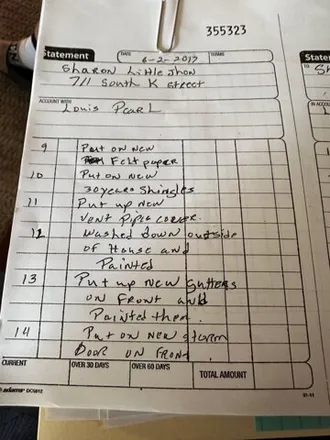 355323
Statement
DATE 6-2-2017 TERMS
Sharon LittleJhon
711 South K street
ACCOUNT WITH
Louis Pearl
9 Put on new
Felt paper
10 Put on new
30 years Shingles
11 Put up new
vent Pipe cover.
12 Washed down outside
of House and
Painted
13 Put up new gutters
on Front and
Painted them.
14 Put on new storm
Door on Front.
CURRENT OVER 30 DAYS OVER 60 DAYS TOTAL AMOUNT
adams DC5812
Statem
TO
IN ACCO